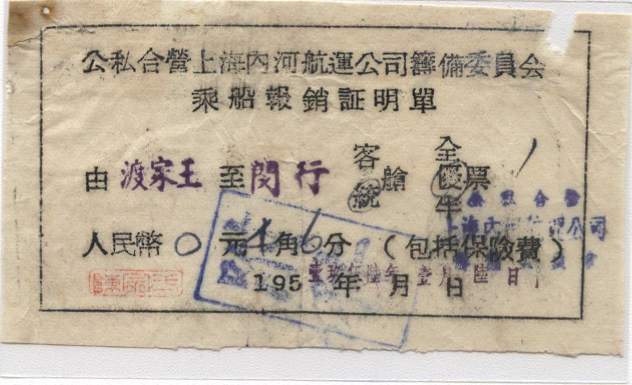 公私合營上海內河航運公司籌備委員会
乘船報銷証明單
由渡家王至閔行 客統艙 全優半票 1
人民幣 0 元 1 角 6 分 (包括保險費)
195 年 月 日
壹玖伍陸年 壹月 陸日
公私合營
上海內河航運公司